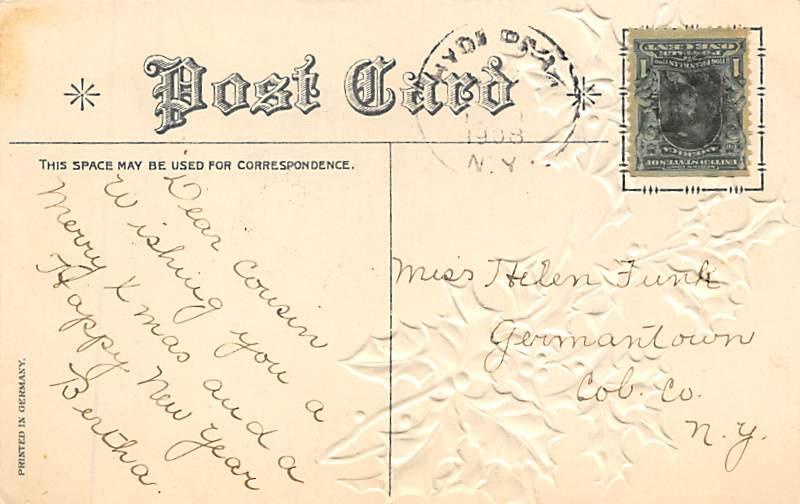 Post Card
HYDE PARK
1908
N.Y.
THIS SPACE MAY BE USED FOR CORRESPONDENCE.
Dear Cousin
Wishing you a
Merry Xmas and a
Happy New Year
Bertha.
Miss Helen Funk
Germantown
Col. Co.
N.Y.
PRINTED IN GERMANY.
UNITED STATES OF
AMERICA
1 1
POSTAGE
ONE CENT